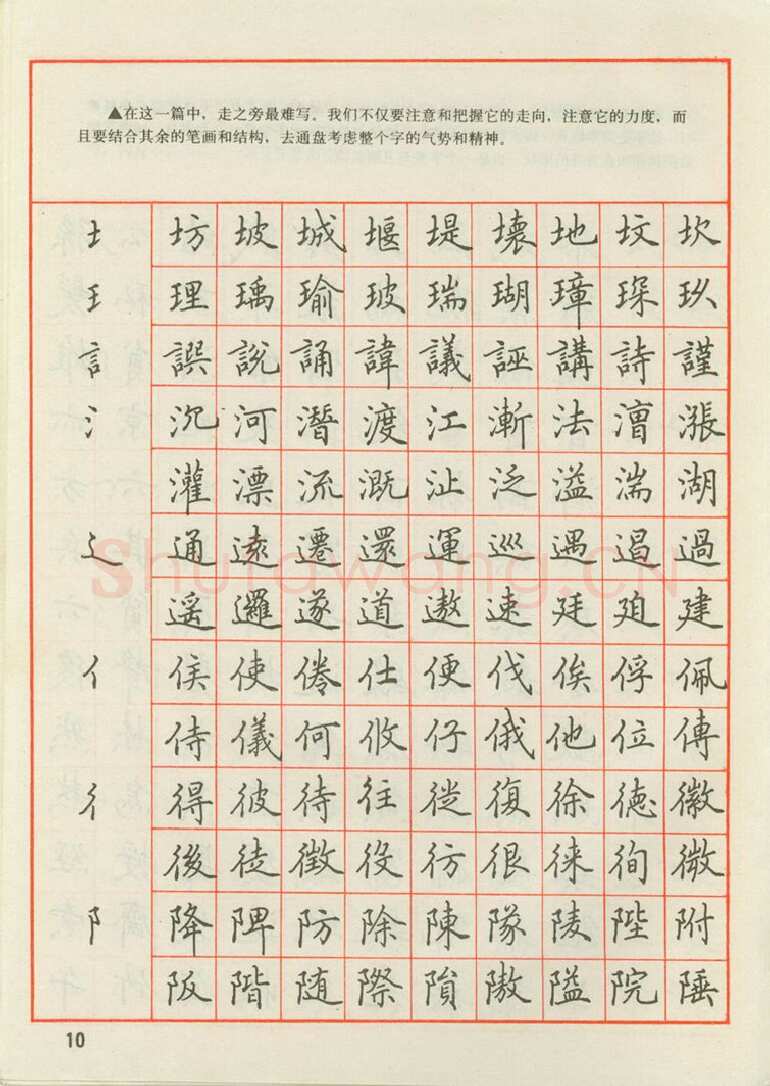 ▲在这一篇中，走之旁最难写。我们不仅要注意和把握它的走向，注意它的力度，而
且要结合其余的笔画和结构，去通盘考虑整个字的气势和精神。
土 坊 坡 城 堰 堤 壞 地 坟 坎
王 理 瑀 瑜 玻 瑞 瑚 璋 琛 玖
訁 譔 說 誦 諱 議 誣 講 詩 謹
氵 沉 河 潛 渡 江 漸 法 漕 漲
灌 漂 流 溉 沚 泛 溢 湍 湖
辶 通 遠 遷 還 運 巡 遇 遏 過
遥 邏 遂 道 遨 速 廷 廸 建
亻 侯 使 倦 仕 便 伐 俟 俘 佩
侍 儀 何 攸 仔 俄 他 位 傳
彳 得 彼 待 往 從 復 徐 德 徽
後 徒 徵 役 彷 很 徠 徇 微
阝 降 陴 防 除 陳 隊 陵 陛 附
阪 階 随 際 隕 隞 隘 院 陲
Shufawang.CN
10